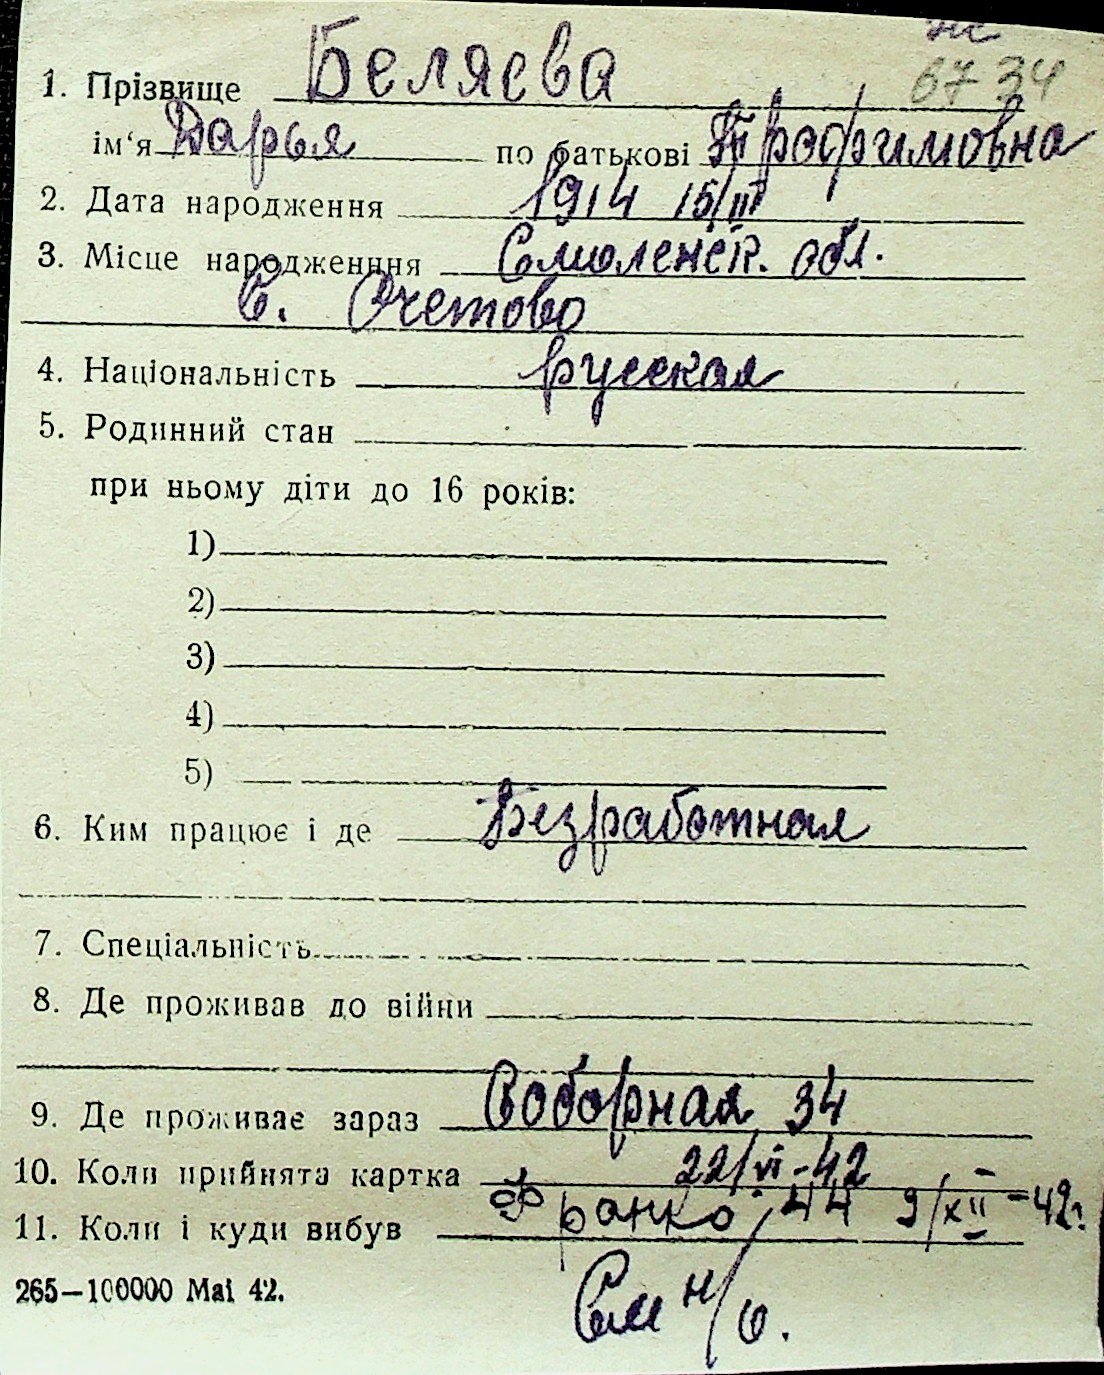 6734
1. Прізвище Беляева
ім‘я Дарья по батькові Трофимовна
2. Дата народження 1914 15/III
3. Місце народженння Смоленск. обл.
С. Очетово
4. Національність русская
5. Родинний стан
при ньому діти до 16 років:
1)
2)
3)
4)
5)
6. Ким працює і де Безработная
7. Спеціальність
8. Де проживав до війни
9. Де проживає зараз Соборная 34
10. Коли прийнята картка 22/VI-42
11. Коли і куди вибув Франко, 44 9/XII-42г.
265—100000 Mai 42.
См н/о.